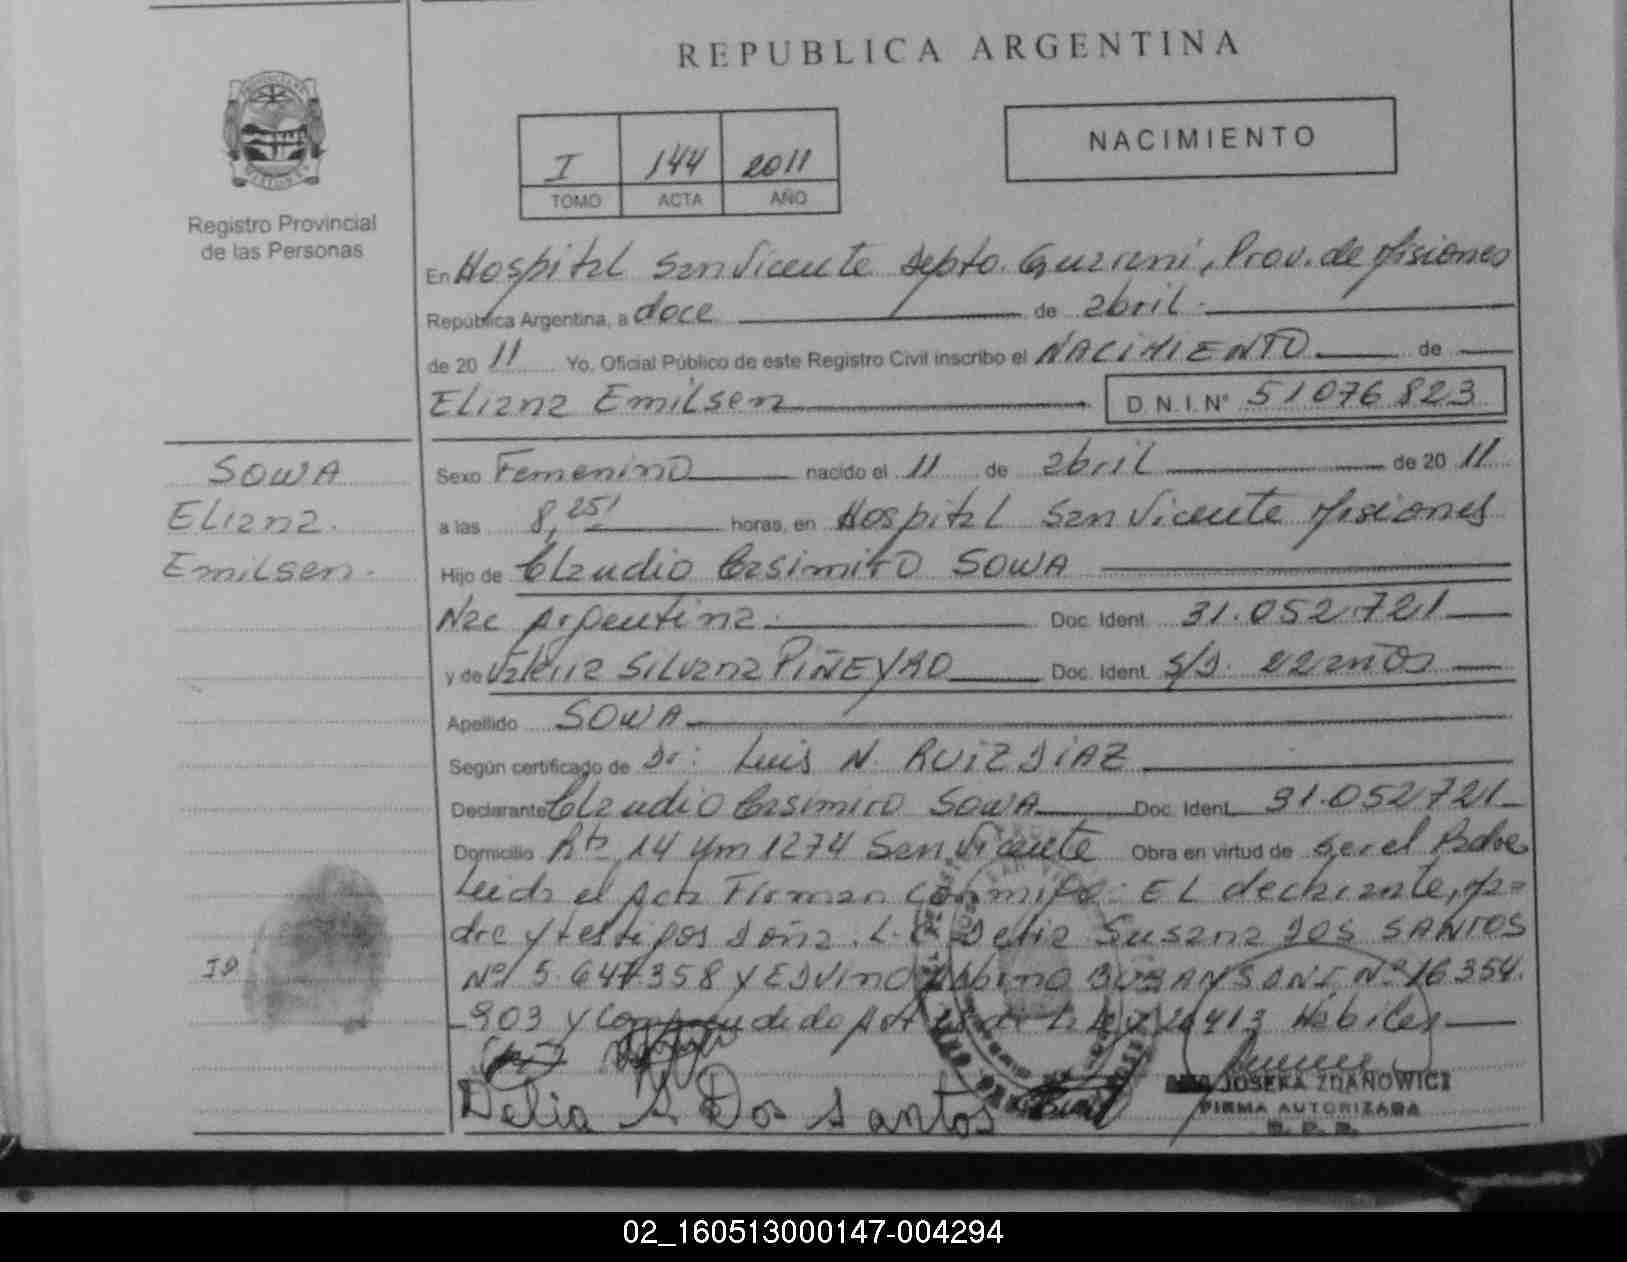 REPUBLICA ARGENTINA
Registro Provincial
de las Personas
I 144 2011
TOMO ACTA AÑO
NACIMIENTO
En Hospital San Vicente Depto. Guarani, Prov. de Misiones
República Argentina, a doce de abril.
de 20 11 Yo, Oficial Público de este Registro Civil inscribo el NACIMIENTO de
Eliana Emilsen D.N.I. N° 51076823
SOWA
Eliana
Emilsen.
Sexo Femenino nacido el 11 de abril de 20 11
a las 8,25' horas, en Hospital San Vicente Misiones
Hijo de Claudio Casimiro SOWA
Nac Argentina. Doc. Ident. 31.052.721
y de Valeria Silvana PIÑEYRO Doc. Ident. S/D. 22 años
Apellido SOWA
Según certificado de Dr: Luis N. RUIZ DIAZ
Declarante Claudio Casimiro SOWA Doc. Ident. 31.052721
Domicilio Rta 14 Km 1274 San Vicente Obra en virtud de ser el Padre
Leida el Acta Firman conmigo: EL declarante, Ma=
dre y testigos doña. L. C. Delia Susana DOS SANTOS
N° 5.647.358 y EDVINO N° 16.354.
903 y comprendido por Hábiles
ID
Delia S Dos Santos
JOSEFA ZDANOWICZ
FIRMA AUTORIZADA
R. P. P.
02_160513000147-004294